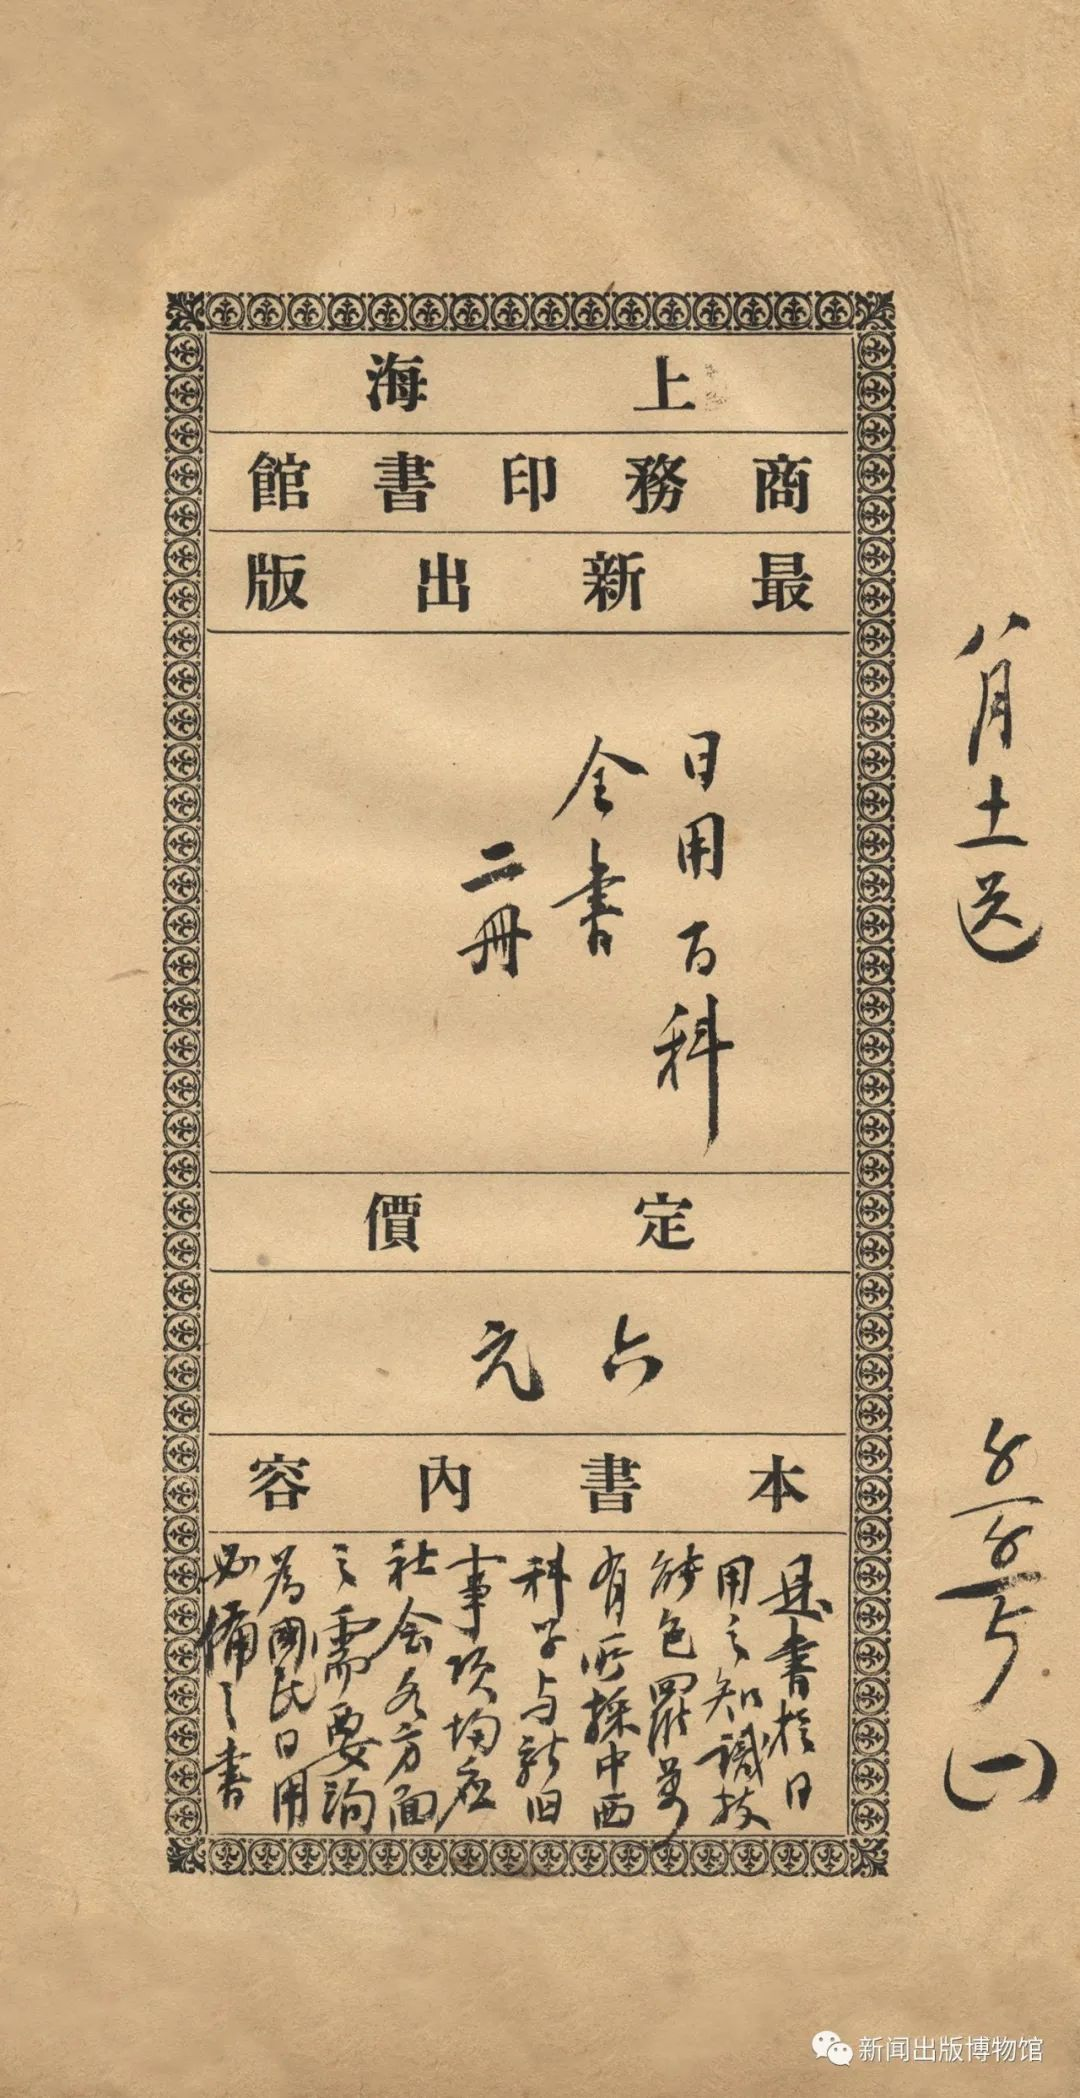 上海
商務印書館
最新出版
日用百科
全書
二冊
定價
六元
本書內容
是書於日
用之知識技
能包羅萬
有所採中西
科学与新旧
事项均应
社会各方面
之需要詢
為國民日用
必備之書
八月土送
(一)
新闻出版博物馆